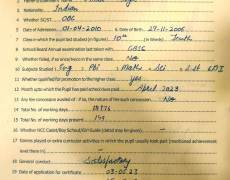 2. Nationality Indian
3. Whether SC/ST OBC
4. Date of Admission 01-04-2010 6. Date of Birth 27-11-2006
7. Class in which the pupil last studied (in figures) 10th (in words) Tenth
8. School/Board Annual examination last taken with CBSE
9. Whether failed, if so once/twice in the same class No
10 Subjects Studied 1 Eng 2 Pbi 3 Math 4 Sci 5 S.st
11. Whether qualified for promotion to the higher class yes
Month upto which the Pupil has paid school dues April 2023
13 Any fee concession availed of: if so, the nature of such concession No
14 Total No. of working days
15 Total No. of working days present
16 Whether NCC Cadet/Boy School/Girl Guide (detail may be given)
17 Games played or extra curricular activities in which the pupil usually took part (mentioned achievement level there in)
18 General conduct Satisfactory
19 Date of application for certificate 03.05.23